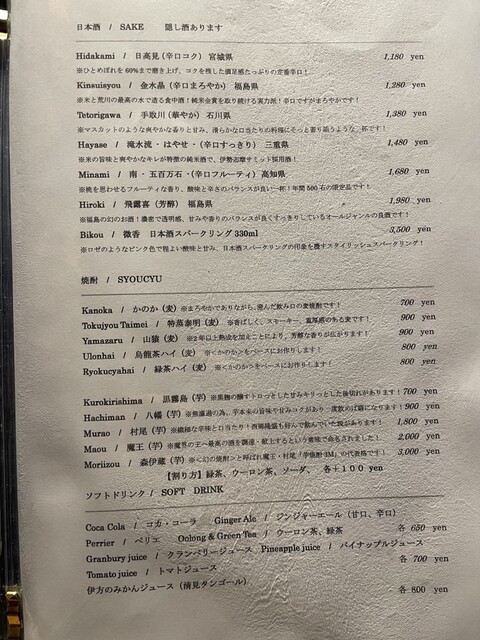 日本酒 / SAKE 隠し酒あります
Hidakami / 日高見（辛口コク）宮城県 1,180 yen
※ひとめぼれを60%まで磨き上げ、コクを残した満足感たっぷりの定番辛口！
Kinsuisyou / 金水晶（辛口まろやか）福島県 1,280 yen
※米と荒川の最高の水で造る食中酒！純米金賞を取り続ける実力派！辛口ですがまろやかです！
Tetorigawa / 手取川（華やか）石川県 1,380 yen
※マスカットのような爽やかな香りと甘み、滑らかな口当たりの料理にそっと寄り添うような一杯です！
Hayase / 滝水流・はやせ・（辛口すっきり）三重県 1,480 yen
※米の旨味と爽やかなキレが特徴の純米酒で、伊勢志摩サミット採用酒！
Minami / 南・五百万石・（辛口フルーティ）高知県 1,680 yen
※桃を思わせるフルーティな香り、酸味と辛さのバランスが良い一杯！年間500石の限定品です！
Hiroki / 飛露喜（芳醇）福島県 1,980 yen
※福島の幻のお酒！濃密で透明感、甘みや香りのバランスが良くすっきりしているオールジャンルの良酒です！
Bikou / 微香 日本酒スパークリング330ml 3,500 yen
※ロゼのようなピンク色で程よい酸味と甘み、日本酒スパークリングの印象を覆すスタイリッシュスパークリング！
焼酎 / SYOUCYU
Kanoka / かのか（麦）※まろやかでありながら、澄んだ飲み口の麦焼酎です！ 700 yen
Tokujyou Taimei / 特蒸泰明（麦）※香ばしく、スモーキー、重厚感のある麦です！ 900 yen
Yamazaru / 山猿（麦）※2年以上熟成を加えことにより、芳醇な香りが広がります！ 900 yen
Ulonhai / 烏龍茶ハイ（麦） ※＜かのか＞をベースにお作りします！ 800 yen
Ryokucyahai / 緑茶ハイ（麦） ※＜かのか＞をベースにお作りします！ 800 yen
Kurokirishima / 黒霧島（芋）※黒麹の醸すトロっとした甘みキリっとした後切れがあります！ 700 yen
Hachiman / 八幡（芋）※無濾過の為、芋本来の旨味や甘みコクがあり一度飲めば癖になります！ 900 yen
Murao / 村尾（芋）※繊細な辛味と口当たり！西郷隆盛も好んで飲んでいた説があります！ 1,800 yen
Maou / 魔王（芋）※魔界の王へ最高の酒を調達・献上するという意味で命名されました！ 2,000 yen
Moriizou / 森伊蔵（芋）※＜幻の焼酎＞と呼ばれ魔王・村尾「芋焼酎3M」の代表格です！ 3,000 yen
【割り方】緑茶、ウーロン茶、ソーダ、 各＋１００ yen
ソフトドリンク / SOFT DRINK
Coca Cola / コカ・コーラ Ginger Ale / ジンジャーエール（甘口、辛口）
Perrier / ペリエ Oolong & Green Tea / ウーロン茶、緑茶 各 650 yen
Granbury juice / クランベリージュース Pineapple juice / パイナップルジュース
Tomato juice / トマトジュース 各 700 yen
伊方のみかんジュース（清見タンゴール） 各 800 yen